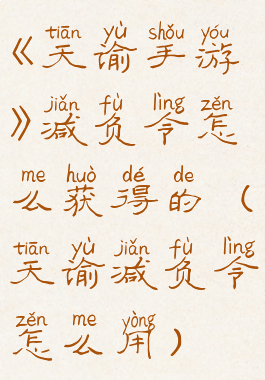 tiān yù shǒu yóu
《天谕手游
jiǎn fù lìng zěn
》减负令怎
me huò dé de
么获得的（
tiān yù jiǎn fù lìng
天谕减负令
zěn me yòng
怎么用）